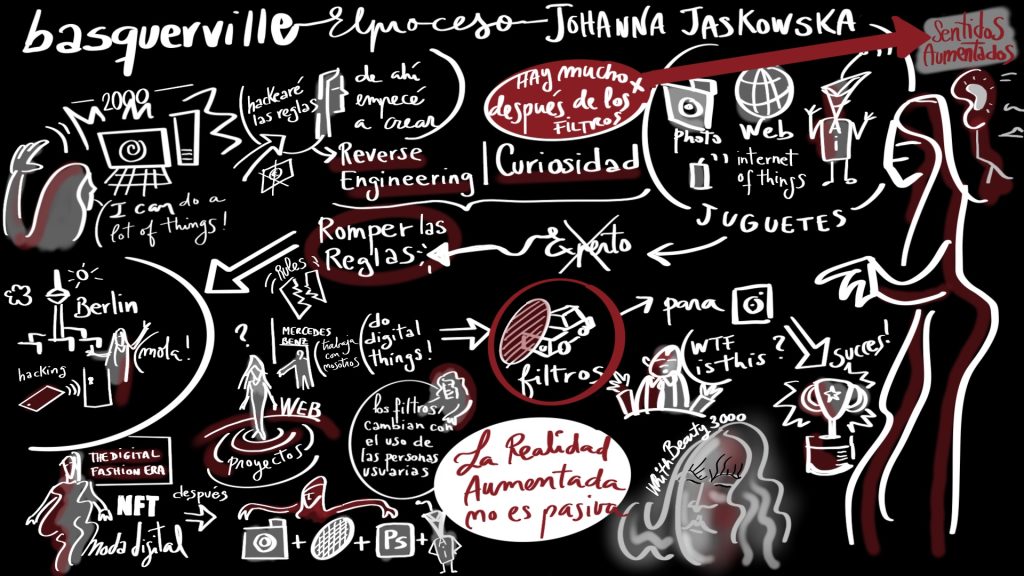 basquerville
El proceso
JOHANNA JASKOWSKA
Sentidos
Aumentados
2000
I can do a
lot of things!
hackearé
las reglas
de ahí
empecé
a crear
Reverse
Engineering
HAY mucho +
después de los
FILTROS
Curiosidad
photo
web
internet
of things
Ai
JUGUETES
Romper las
Reglas
Berlin
mola!
hacking
Rules
?
MERCEDES
BENZ
trabaja
con
nosotros
do
digital
things!
WEB
proyectos
filtros
para
WTF
is this?
Succes!
los filtros
cambian con
el uso de
las personas
usuarias
La Realidad
Aumentada
no es pasiva
With Beauty 3000
THE DIGITAL
FASHION ERA
NFT
moda digital
después
+
+
Ps
+